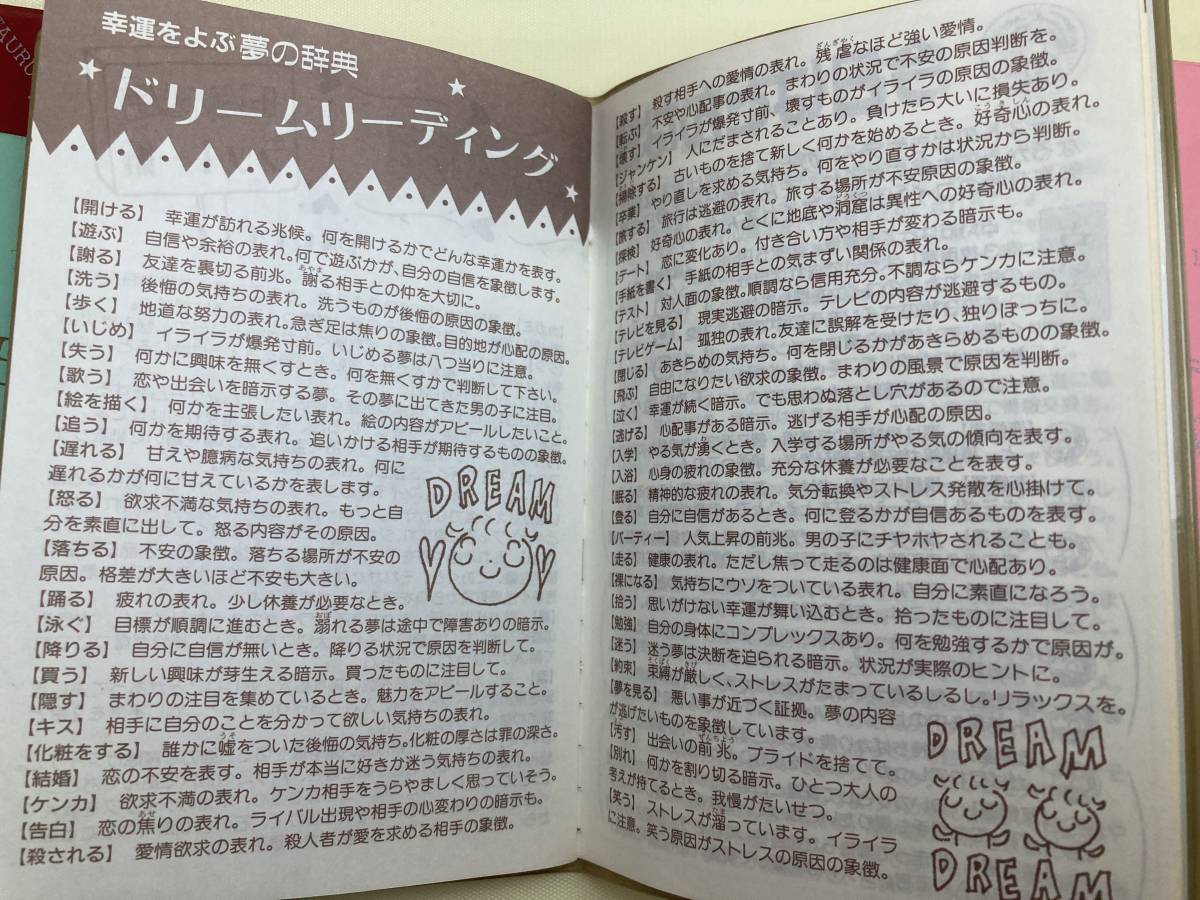 TAURU
幸運をよぶ夢の辞典
ドリームリーディング
【開ける】 幸運が訪れる兆候。何を開けるかでどんな幸運かを表す。
【遊ぶ】 自信や余裕の表れ。何で遊ぶかが、自分の自信を象徴します。
【謝る】 友達を裏切る前兆。謝る相手との仲を大切に。
【洗う】 後悔の気持ちの表れ。洗うものが後悔の原因の象徴。
【歩く】 地道な努力の表れ。急ぎ足は焦りの象徴。目的地が心配の原因。
【いじめ】 イライラが爆発寸前。いじめる夢は八つ当りに注意。
【失う】 何かに興味を無くすとき。何を無くすかで判断して下さい。
【歌う】 恋や出会いを暗示する夢。その夢に出てきた男の子に注目。
【絵を描く】 何かを主張したい表れ。絵の内容がアピールしたいこと。
【追う】 何かを期待する表れ。追いかける相手が期待するものの象徴。
【遅れる】 甘えや臆病な気持ちの表れ。何に
遅れるかが何に甘えているかを表します。
【怒る】 欲求不満な気持ちの表れ。もっと自
分を素直に出して。怒る内容がその原因。
【落ちる】 不安の象徴。落ちる場所が不安の
原因。格差が大きいほど不安も大きい。
DREAM
【踊る】 疲れの表れ。少し休養が必要なとき。
【泳ぐ】 目標が順調に進むとき。溺れる夢は途中で障害ありの暗示。
【降りる】 自分に自信が無いとき。降りる状況で原因を判断して。
【買う】 新しい興味が芽生える暗示。買ったものに注目して。
【隠す】 まわりの注目を集めているとき。魅力をアピールすること。
【キス】 相手に自分のことを分かって欲しい気持ちの表れ。
【化粧をする】 誰かに嘘をついた後悔の気持ち。化粧の厚さは罪の深さ。
【結婚】 恋の不安を表す。相手が本当に好きか迷う気持ちの表れ。
【ケンカ】 欲求不満の表れ。ケンカ相手をうらやましく思っていそう。
【告白】 恋の焦りの表れ。ライバル出現や相手の心変わりの暗示も。
【殺される】 愛情欲求の表れ。殺人者が愛を求める相手の象徴。
【殺す】 殺す相手への愛情の表れ。残虐なほど強い愛情。
【転ぶ】 不安や心配事の表れ。まわりの状況で不安の原因判断を。
【壊す】 イライラが爆発寸前、壊すものがイライラの原因の象徴。
【ジャンケン】 人にだまされることあり。負けたら大いに損失あり。
【掃除する】 古いものを捨て新しく何かを始めるとき。好奇心の表れ。
【卒業】 やり直しを求める気持ち。何をやり直すかは状況から判断。
【旅する】 旅行は逃避の表れ。旅する場所が不安原因の象徴。
【探検】 好奇心の表れ。とくに地底や洞窟は異性への好奇心の表れ。
【デート】 恋に変化あり。付き合い方や相手が変わる暗示も。
【手紙を書く】 手紙の相手との気まずい関係の表れ。
【テスト】 対人面の象徴。順調なら信用充分。不調ならケンカに注意。
【テレビを見る】 現実逃避の暗示。テレビの内容が逃避するもの。
【テレビゲーム】 孤独の表れ。友達に誤解を受けたり、独りぼっちに。
【閉じる】 あきらめの気持ち。何を閉じるかがあきらめるものの象徴。
【飛ぶ】 自由になりたい欲求の象徴。まわりの風景で原因を判断。
【泣く】 幸運が続く暗示。でも思わぬ落とし穴があるので注意。
【逃げる】 心配事がある暗示。逃げる相手が心配の原因。
【入学】 やる気が湧くとき。入学する場所がやる気の傾向を表す。
【入浴】 心身の疲れの象徴。充分な休養が必要なことを表す。
【眠る】 精神的な疲れの表れ。気分転換やストレス発散を心掛けて。
【登る】 自分に自信があるとき。何に登るかが自信あるものを表す。
【パーティー】 人気上昇の前兆。男の子にチヤホヤされることも。
【走る】 健康の表れ。ただし焦って走るのは健康面で心配あり。
【裸になる】 気持ちにウソをついている表れ。自分に素直になろう。
【拾う】 思いがけない幸運が舞い込むとき。拾ったものに注目して。
【勉強】 自分の身体にコンプレックスあり。何を勉強するかで原因が。
【迷う】 迷う夢は決断を迫られる暗示。状況が実際のヒントに。
【約束】 束縛が厳しく、ストレスがたまっているしるし。リラックスを。
【夢を見る】 悪い事が近づく証拠。夢の内容
が逃げたいものを象徴しています。
【汚す】 出会いの前兆。プライドを捨てて。
【別れ】 何かを割り切る暗示。ひとつ大人の
考えが持てるとき。我慢がたいせつ。
【笑う】 ストレスが溜っています。イライラ
に注意。笑う原因がストレスの原因の象徴。
DREAM
DREAM